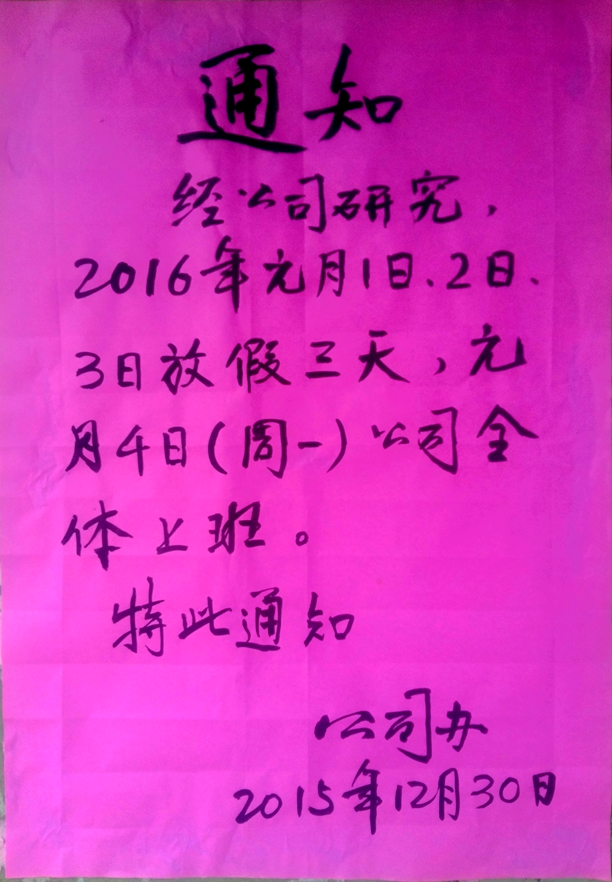 通知
经公司研究，
2016年元月1日、2日、
3日放假三天，元
月4日(周一)公司全
体上班。
特此通知
公司办
2015年12月30日